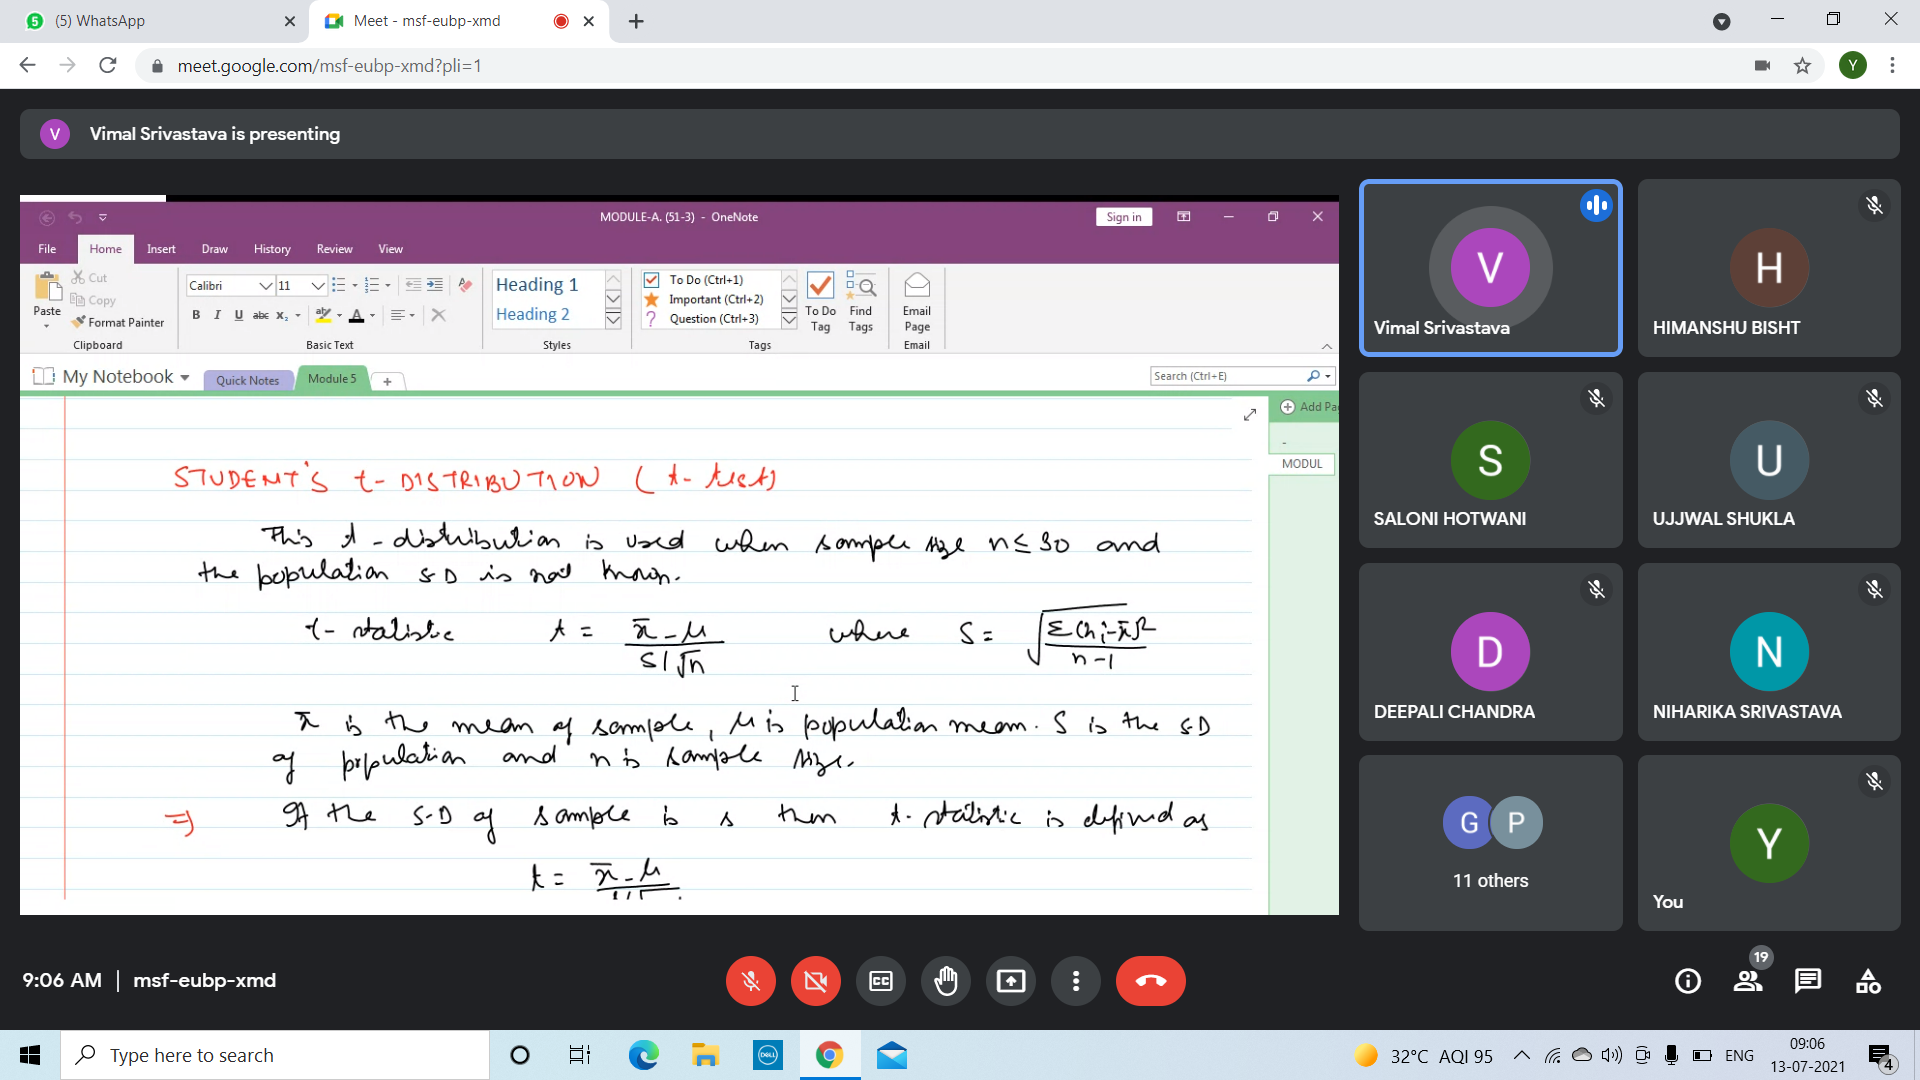 (5) WhatsApp
Meet - msf-eubp-xmd
meet.google.com/msf-eubp-xmd?pli=1
Y
V
Vimal Srivastava is presenting
MODULE-A. (51-3) - OneNote
Sign in
File Home Insert Draw History Review View
Paste
Cut
Copy
Format Painter
Clipboard
Calibri 11
B I U abc x₂ A
Basic Text
Heading 1
Heading 2
Styles
To Do (Ctrl+1)
Important (Ctrl+2)
Question (Ctrl+3)
Tags
To Do Tag
Find Tags
Email Page
Email
My Notebook
Quick Notes
Module 5
Search (Ctrl+E)
Add Pa
MODUL
STUDENT'S t-DISTRIBUTION (t-test)
This t-distribution is used when sample size n ≤ 30 and
the population S.D is not known.
t-statistic t = (x̄ - μ) / (S/√n) where S = √(Σ(xi - x̄)² / (n-1))
x̄ is the mean of sample, μ is population mean. S is the S.D
of population and n is sample size.
⇒ If the S.D of sample is s then t-statistic is defined as
t = x̄ - μ
V
Vimal Srivastava
H
HIMANSHU BISHT
S
SALONI HOTWANI
U
UJJWAL SHUKLA
D
DEEPALI CHANDRA
N
NIHARIKA SRIVASTAVA
G P
11 others
Y
You
9:06 AM | msf-eubp-xmd
CC
19
Type here to search
DELL
32°C AQI 95
ENG
09:06
13-07-2021
4